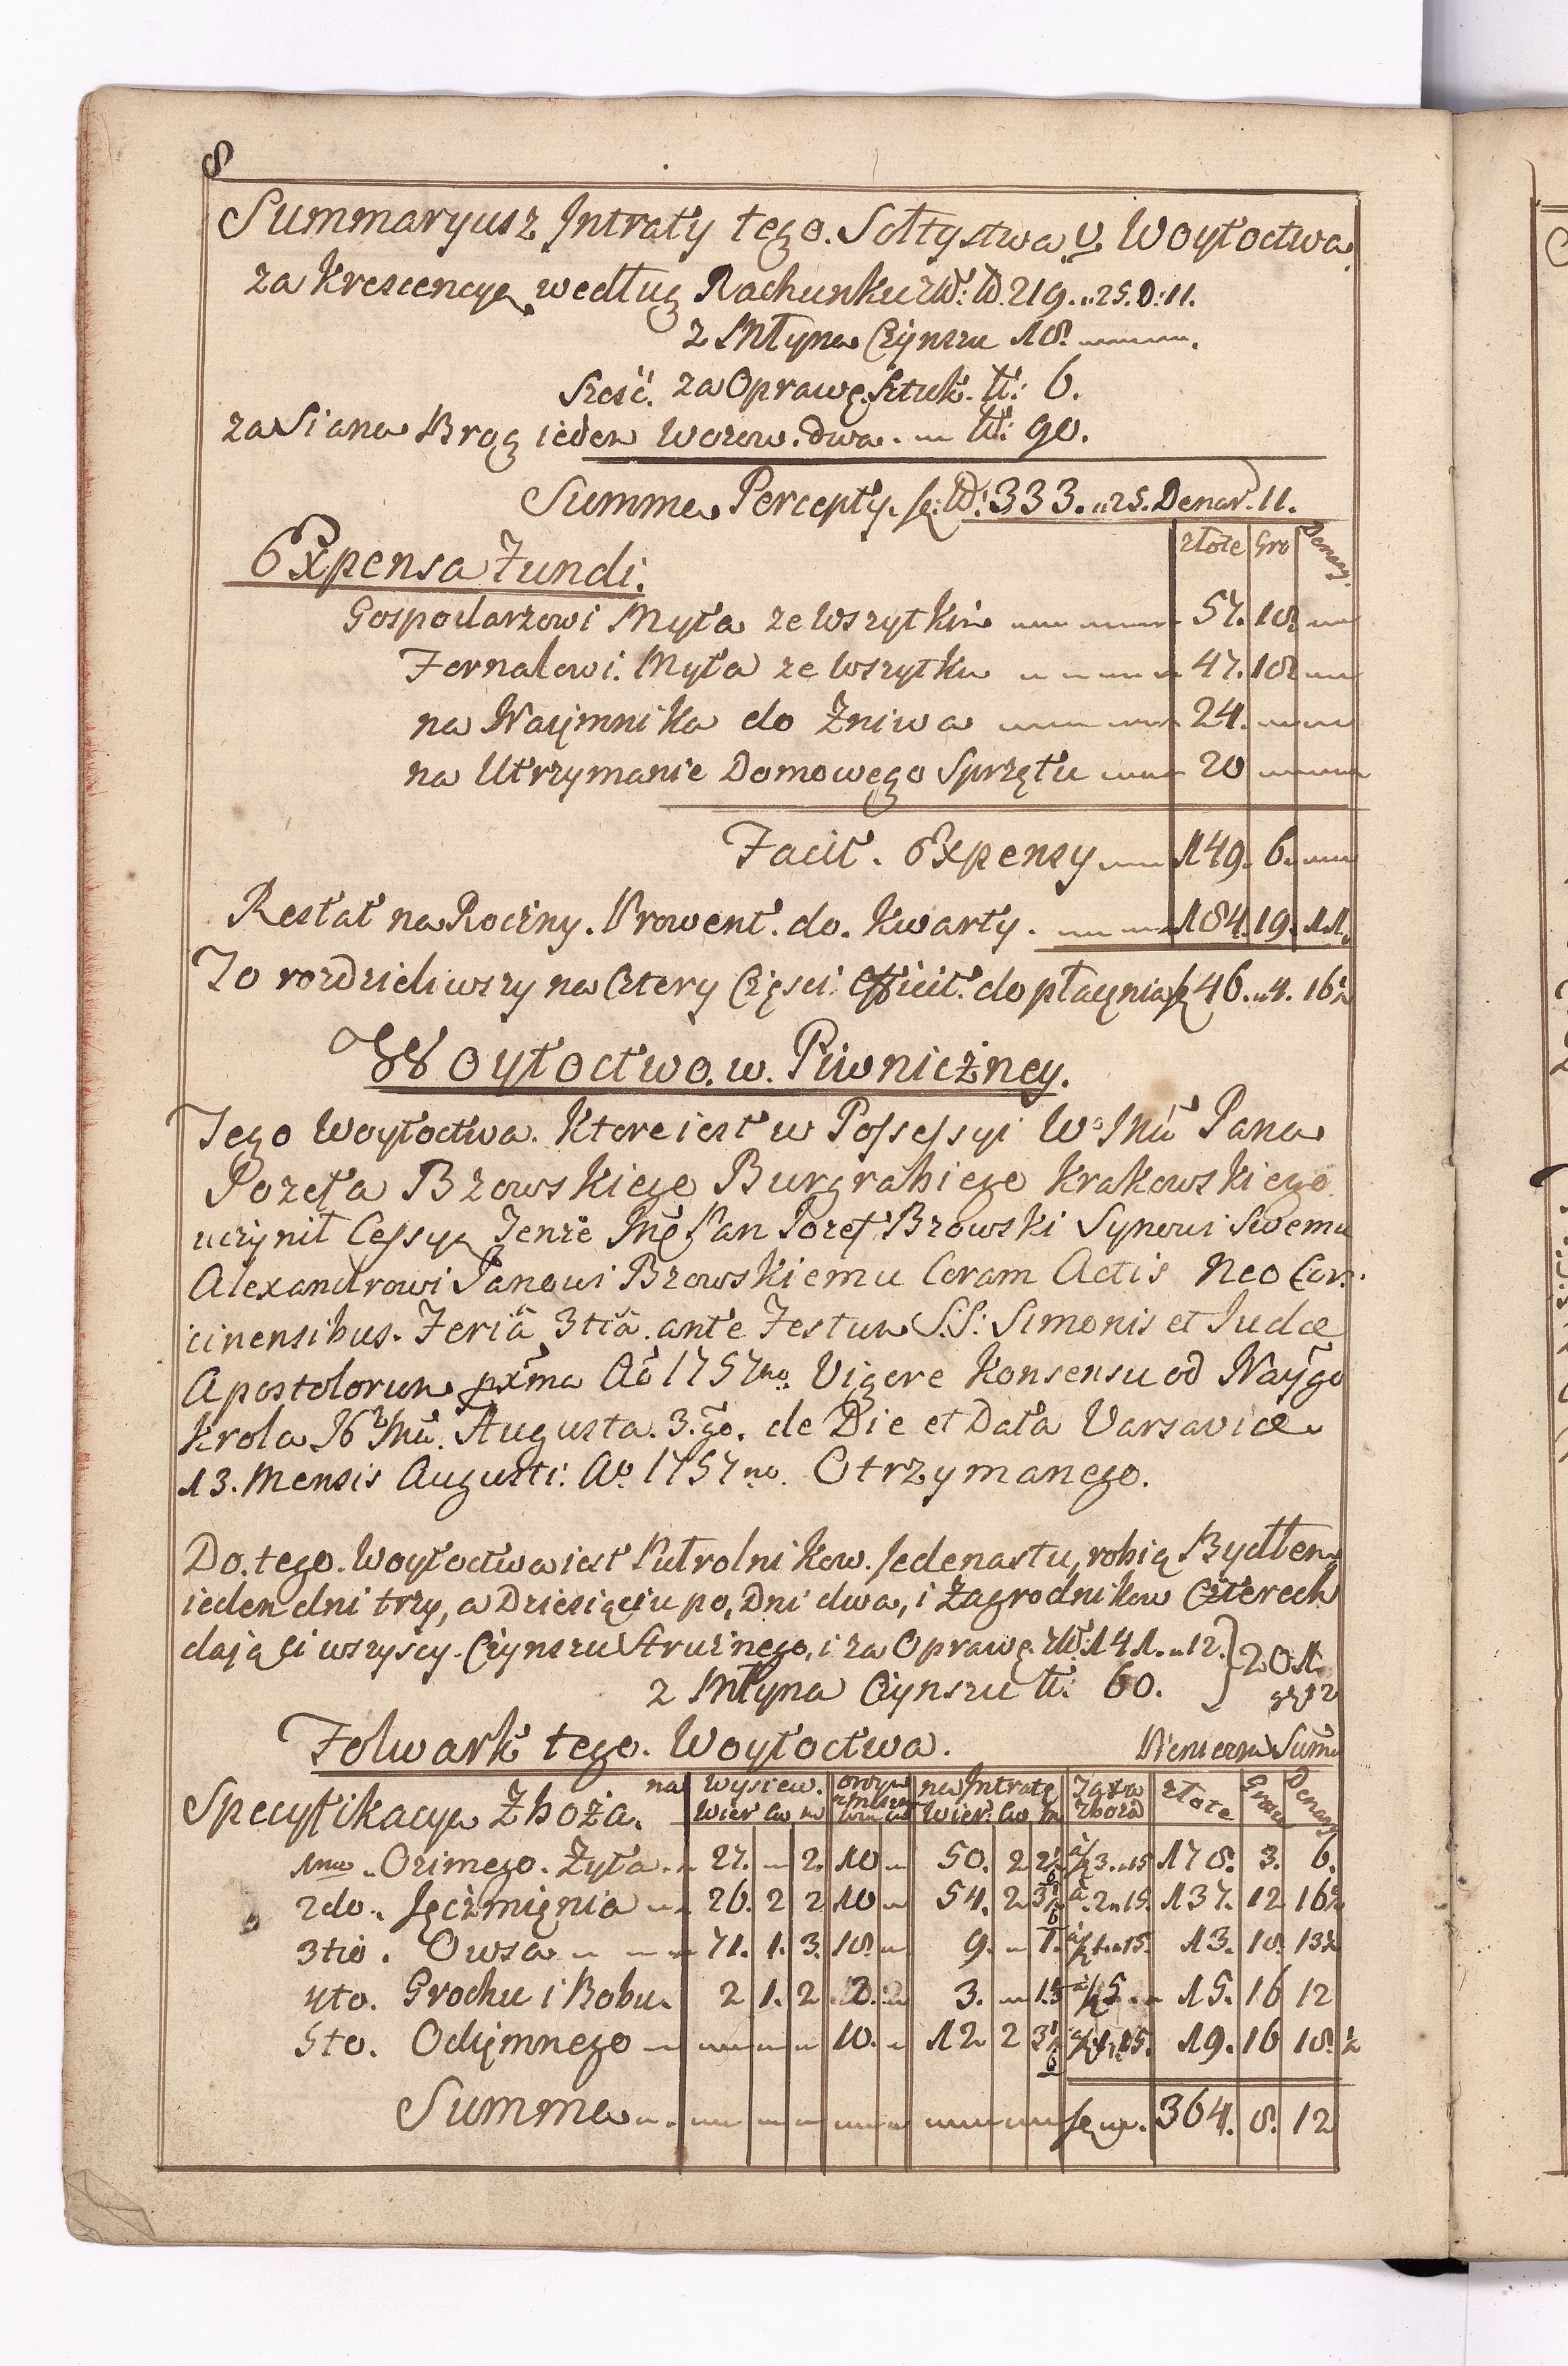 8
Summaryusz Jntraty tego. Sołtystwa. v. Woytoctwa
za Krescencyą według Rachunku zł: tł. 219. „25. D: 11.
z Młyna Czynszu 18.
Sześć. za Oprawę. Sztuk. tł: 6.
za Siana Brog ieden Wozow. dwa. tł: 90.
Summa Percepty. fl: 333. „25. Denar. 11.
Expensa Fundi. złote Gro Denary.
Gospodarzowi Myta ze Wszytkim 57. 18.
Fornalowi. Myta ze Wszytkim 47. 18.
na Naymnika do Żniwa 24.
na Utrzymanie Domowego Sprzętu 20
Facit. Expensy 149. 6.
Restat na Roczny. Prowent. do. Kwarty. 184. 19. 11.
To rozdzieliwszy na Cztery Częsci. Efficit. do płacynia 46. „4. 16½
Woytoctwo. w. Piwniczney.
Tego Woytoctwa. Ktore iest w Possessyi Wo Jmci Pana
Jozefa Bzowskiego Burgrabiego Krakowskiego
uczynił Cessyą Tenże Jmć Pan Jozef Bzowski Synowi Swemu
Alexandrowi Panowi Bzowskiemu Coram Actis Neo Can
icinensibus. Feriâ 3tiâ. ante Festum S:S: Simonis et Judæ
Apostolorum pxma Ao 1757mo. Vigore Konsensu od Naygo
Krola Augusta. 3.go. de Die et Data Varsaviæ
13. Mensis Augusti. Ao 1757mo. Otrzymanego.
Do. tego. Woytoctwa iest Putrolnikow. Jedenastu, robią Bydłem
ieden dni trzy, a Dziesiąciu po, Dni dwa, i Zagrodnikow Czterech
dają ci wszyscy. Czynszu Strużnego, i za Oprawę. zł. 141. „12. } 201
z Młyna Czynszu tł: 60. gr 12
Folwark tego. Woytoctwa. Summ
Specyfikacya Zboża. na wysiew. wier. ćw m na Jntratę wier. ćw m Taxa zboża złote Grosz Denary
1mo. Ozimego. Żyta. 27. 2. 10 50. 2 2½ 6 à 3. „15 178. 3. 6.
2do. Jęczmięnia 26. 2 2 10 54. 2 3½ 6 à. 2. „15. 137. 12 16½
3tio. Owsa 71. 1. 3. 18. 9. 1. à 1. „15. 13. 18. 13½
4to. Grochu i Bobu. 2 1. 2 2. 3. 1.5 à 5 15. 16 12
5to. Odięmnego 10. 12 2 3½ 6 à 1. „15. 19. 16 18. ½
Summa 364. 8. 12